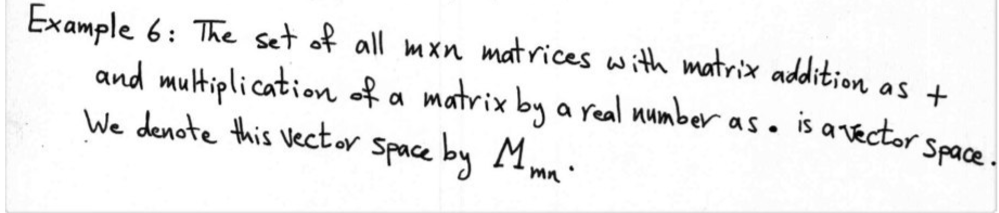 Example 6: The set of all mxn matrices with matrix addition as +
and multiplication of a matrix by a real number as • is a vector space.
We denote this vector space by Mmn.